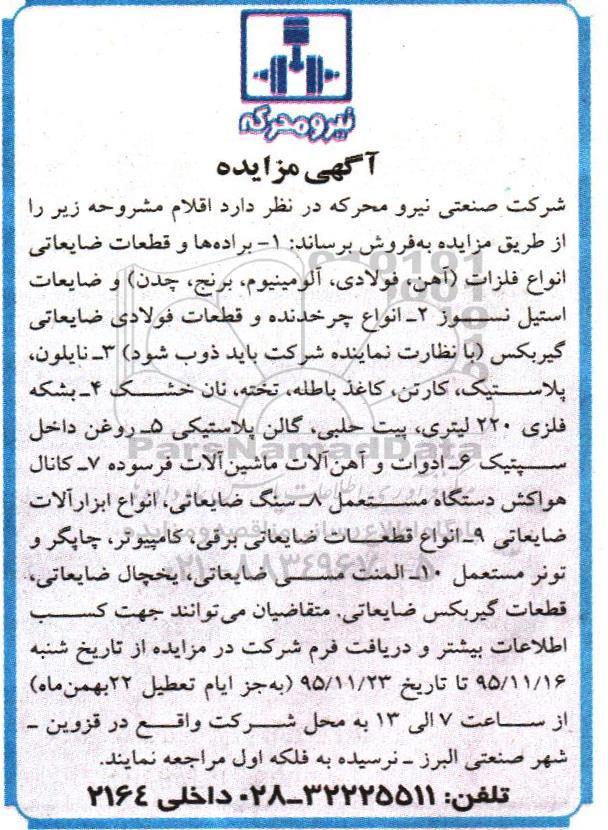 نیرو محرکه
آگهی مزایده
شرکت صنعتی نیرو محرکه در نظر دارد اقلام مشروحه زیر را
از طریق مزایده به‌فروش برساند: ۱- براده‌ها و قطعات ضایعاتی
انواع فلزات (آهن، فولادی، آلومینیوم، برنج، چدن) و ضایعات
استیل نسوز ۲ـ انواع چرخدنده و قطعات فولادی ضایعاتی
گیربکس (با نظارت نماینده شرکت باید ذوب شود) ۳ـ نایلون،
پلاستیک، کارتن، کاغذ باطله، تخته، نان خشک ۴ـ بشکه
فلزی ۲۲۰ لیتری، پیت حلبی، گالن پلاستیکی ۵ـ روغن داخل
سپتیک ۶ـ ادوات و آهن‌آلات ماشین‌آلات فرسوده ۷ـ کانال
هواکش دستگاه مستعمل ۸ـ سنگ ضایعاتی، انواع ابزارآلات
ضایعاتی ۹ـ انواع قطعات ضایعاتی برقی، کامپیوتر، چاپگر و
تونر مستعمل ۱۰ـ المنت مسی ضایعاتی، یخچال ضایعاتی،
قطعات گیربکس ضایعاتی. متقاضیان می‌توانند جهت کسب
اطلاعات بیشتر و دریافت فرم شرکت در مزایده از تاریخ شنبه
۹۵/۱۱/۱۶ تا تاریخ ۹۵/۱۱/۲۳ (به‌جز ایام تعطیل ۲۲بهمن‌ماه)
از ساعت ۷ الی ۱۳ به محل شرکت واقع در قزوین ـ
شهر صنعتی البرز ـ نرسیده به فلکه اول مراجعه نمایند.
تلفن: ۳۲۲۲۵۵۱۱-۰۲۸ داخلی ۲۱۶۴
ParsNamadData
۰۲۱-۸۸۳۴۹۶۷۰-۵